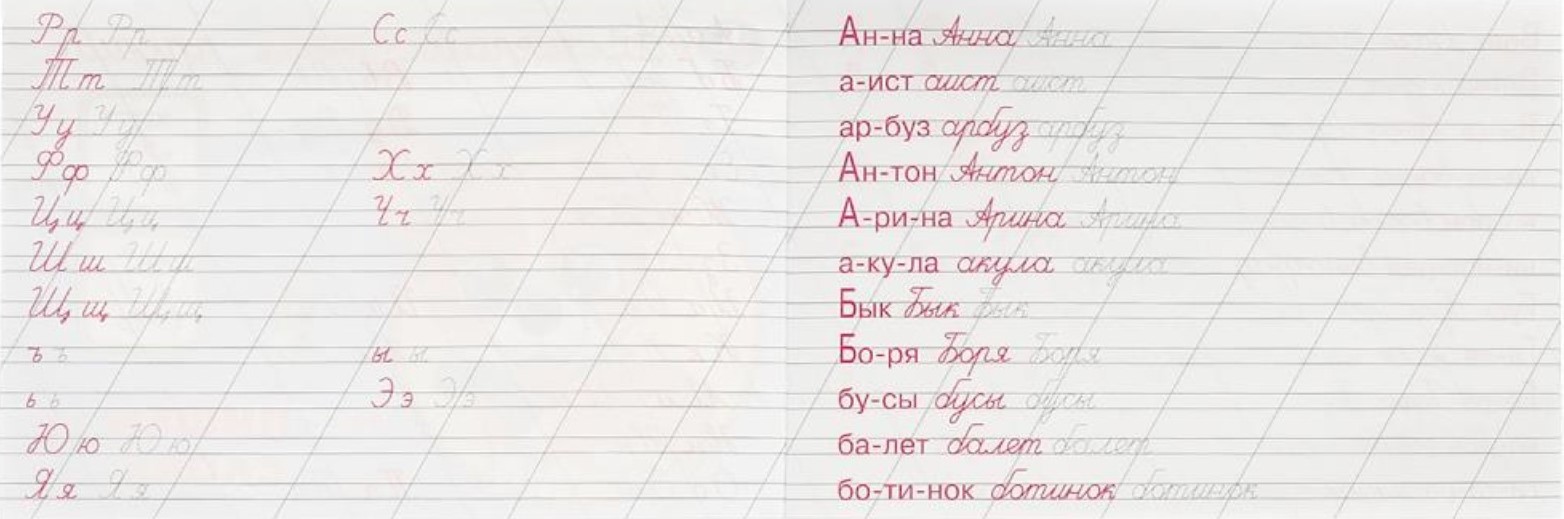 Рр Рр Сс Сс
Тт Тт
Уу Уу
Фф Фф Хх Хх
Цц Цц Чч Чч
Шш Шш
Щщ Щщ
ъ ъ ы ы
ь ь Ээ Ээ
Юю Юю
Яя Яя
Ан-на Анна Анна
а-ист аист аист
ар-буз арбуз арбуз
Ан-тон Антон Антон
А-ри-на Арина Арина
а-ку-ла акула акула
Бык Бык Бык
Бо-ря Боря Боря
бу-сы бусы бусы
ба-лет балет балет
бо-ти-нок ботинок ботинок